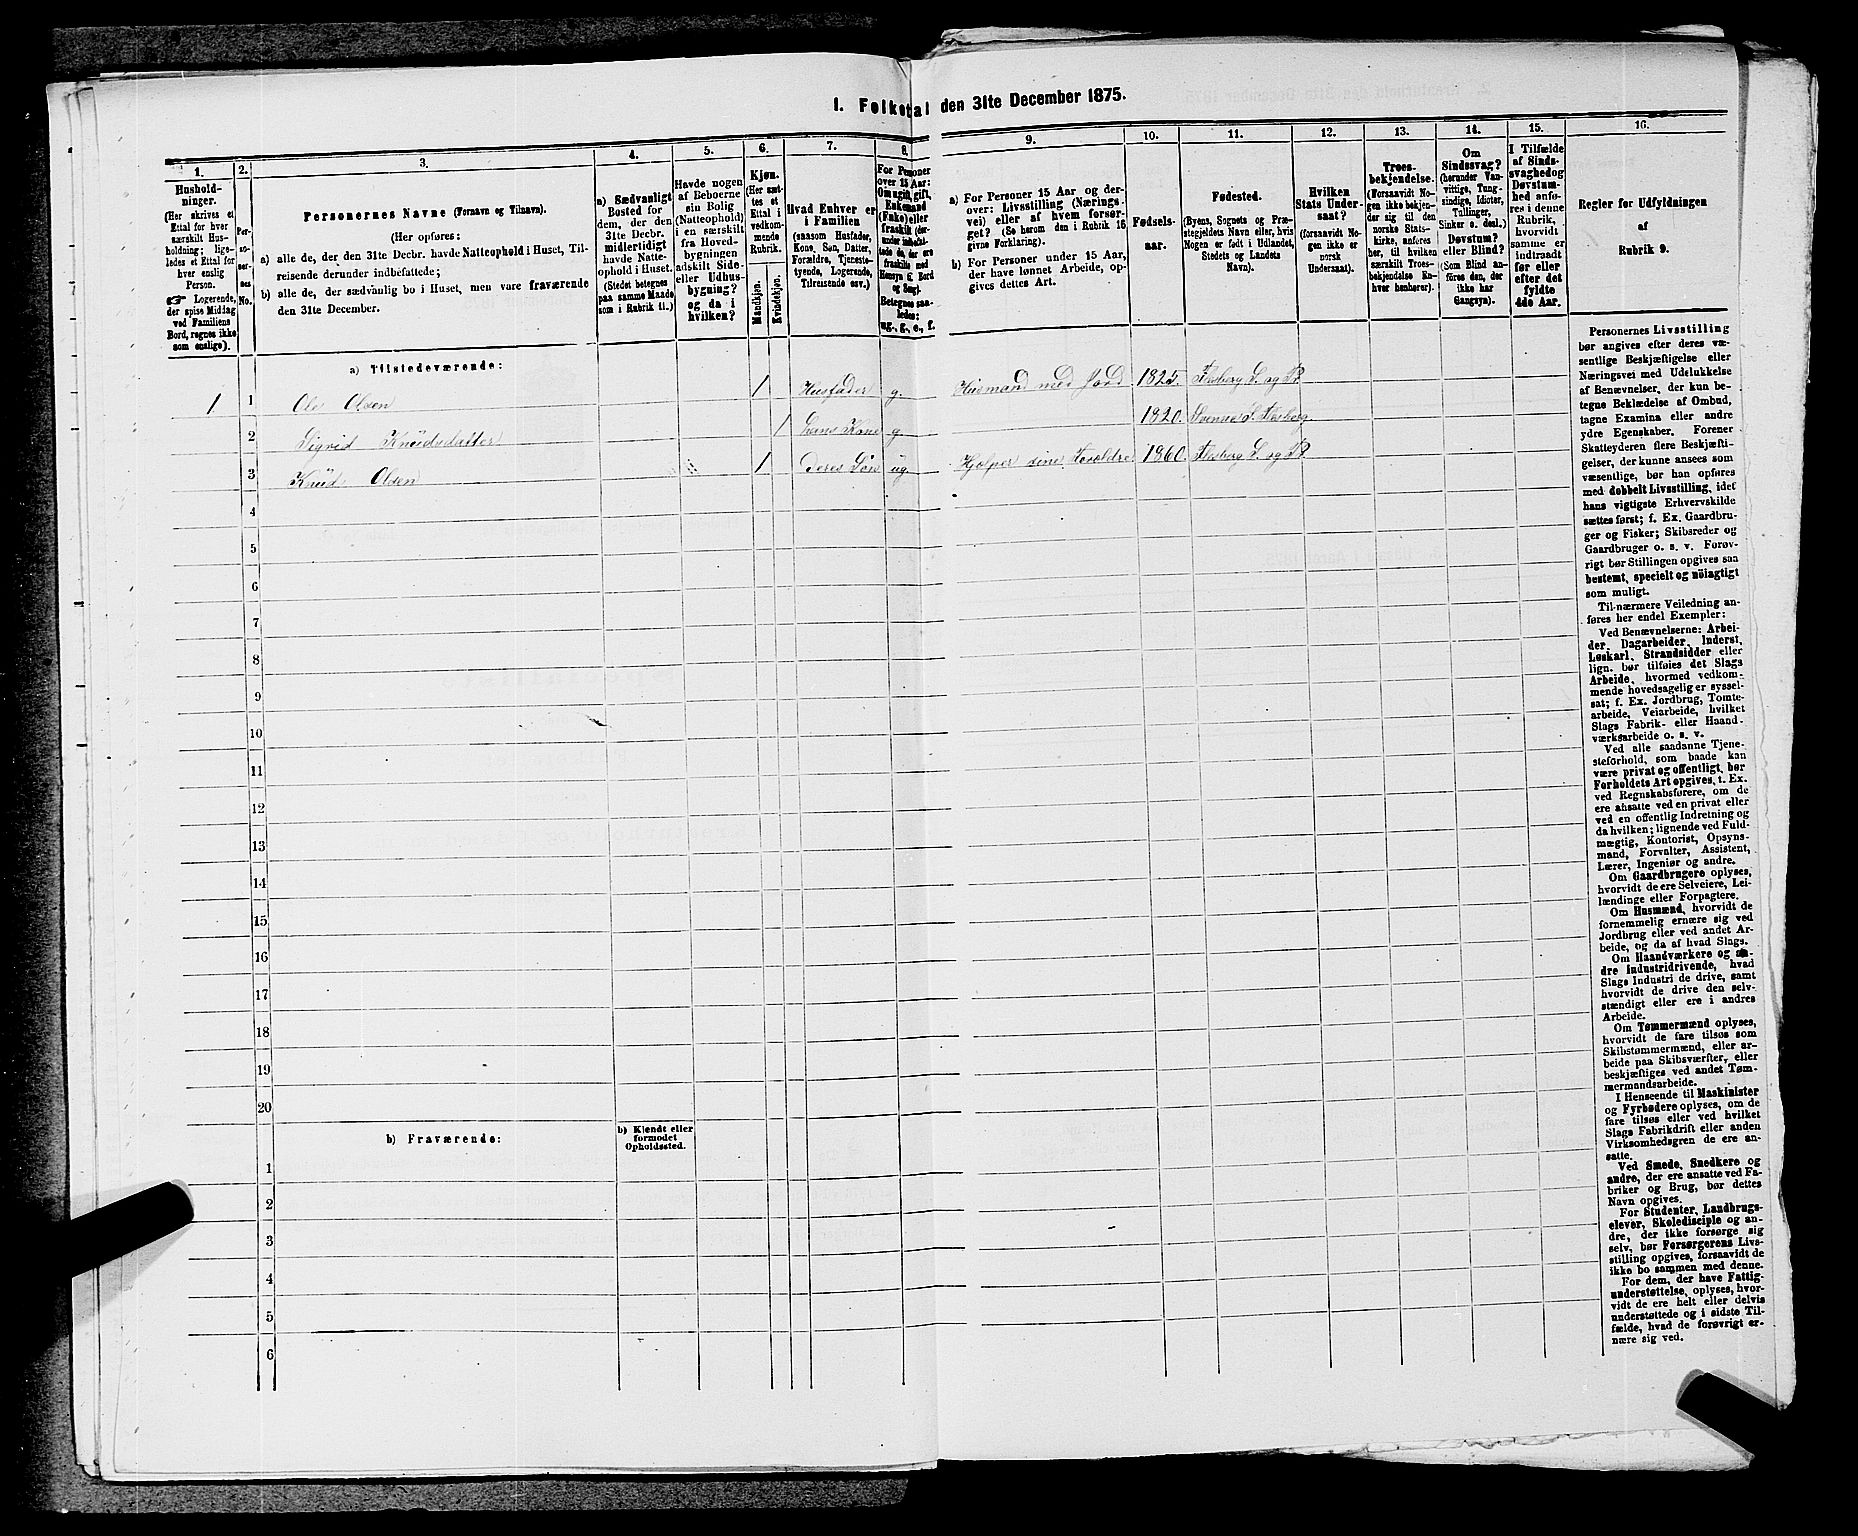 I. Folketal den 31te December 1875.
1.
Hushold-
ninger.
(Her skrives et
Ettal for hver
særskilt Hus-
holdning; lige-
ledes et Ettal for
hver enslig
Person.
☞ Logerende,
der spise Middag
ved Familiens
Bord, regnes ikke
som enslige).
2.
Per-
so-
ner-
nes
No.
3.
Personernes Navne (Fornavn og Tilnavn).
(Her opføres:
a) alle de, der den 31te Decbr. havde Natteophold i Huset, Til-
reisende derunder indbefattede;
b) alle de, der sædvanlig bo i Huset, men vare fraværende
den 31te December.
4.
a) Sædvanligt
Bosted for
dem, der den
31te Decbr.
midlertidigt
havde Natte-
ophold i Huset.
(Stedet betegnes
paa samme Maade
som i Rubrik 11.)
5.
Havde nogen
af Beboerne
sin Bolig
(Natteophold)
i en særskilt
fra Hoved-
bygningen
adskilt Side-
eller Udhus-
bygning?
og da i
hvilken?
6.
Kjøn.
(Her sæt-
tes et
Ettal i
vedkom-
mende
Rubrik.
Mandkjøn.
Kvindekjøn.
7.
Hvad Enhver er
i Familien
(saasom Husfader,
Kone, Søn, Datter,
Forældre, Tjeneste-
tyende, Logerende,
Tilreisende osv.)
8.
For Personer
over 15 Aar:
Om ugift, gift,
Enkemand
(Enke) eller
fraskilt (der-
under indbefat-
tede de, der ere
fraskilte med
Hensyn t. Bord
og Seng).
Betegnes saa-
ledes:
ug., g., e., f.
9.
a) For Personer 15 Aar og der-
over: Livsstilling (Nærings-
vei) eller af hvem forsør-
get? (Se herom den i Rubrik 16
givne Forklaring).
b) For Personer under 15 Aar,
der have lønnet Arbeide, op-
gives dettes Art.
10.
Fødsels-
aar.
11.
Fødested.
(Byens, Sognets og Præ-
stegjeldets Navn eller, hvis
Nogen er født i Udlandet,
Stedets og Landets
Navn).
12.
Hvilken
Stats Under-
saat?
(forsaavidt No-
gen ikke er
norsk
Undersaat).
13.
Troes-
bekjendelse.
(Forsaavidt No-
gen ikke bekjen-
der sig til den
norske Stats-
kirke, anføres
her, til hvilken
særskilt Troes-
bekjendelse En-
hver henhører).
14.
Om
Sindssvag?
(herunder Van-
vittige, Tung-
sindige, Idioter,
Tullinger,
Sinker o. desl.)
Døvstum?
eller Blind?
(Som Blind an-
føres den, der
ikke har
Gangsyn).
15.
I Tilfælde
af Sinds-
svaghed og
Døvstum-
hed anfø-
res i denne
Rubrik,
hvorvidt
samme er
indtraadt
før eller
efter det
fyldte
4de Aar.
16.
Regler for Udfyldningen
af
Rubrik 9.
a) Tilstedeværende:
1 1 Ole Olsen 1 Husfader g. Husmand med Jord 1825. Flesberg S. og Pr
2 Sigrid Knudsdatter 1 hans Kone g 1820. Svenne S. Flesberg
3 Knud Olsen 1 Deres Søn ug Hjelper sine Foreldre 1860. Flesberg S. og Pr
4
5
6
7
8
9
10
11
12
13
14
15
16
17
18
19
20
b) Fraværende:
b) Kjendt eller
formodet
Opholdssted.
1
2
3
4
5
6
Personernes Livsstilling
bør angives efter deres væ-
sentlige Beskjæftigelse eller
Næringsvei med Udelukkelse
af Benævnelser, der kun be-
tegne Beklædelse af Ombud,
tagne Examina eller andre
ydre Egenskaber. Forener
Skatteyderen flere Beskjæfti-
gelser, der kunne ansees som
væsentlige, bør han opføres
med dobbelt Livsstilling, idet
hans vigtigste Erhvervskilde
sættes først; f. Ex. Gaardbru-
ger og Fisker; Skibsreder og
Gaardbruger o. s. v. Forøv-
rigt bør Stillingen opgives saa
bestemt, specielt og nöiagtigt
som muligt.
Til nærmere Veiledning an-
føres her endel Exempler:
Ved Benævnelserne: Arbei-
der, Dagarbeider, Inderst,
Løskarl, Strandsidder eller
lign. bør tilføies det Slags
Arbeide, hvormed vedkom-
mende hovedsagelig er syssel-
sat; f. Ex. Jordbrug, Tomte-
arbeide, Veiarbeide, hvilket
Slags Fabrik- eller Haand-
værksarbeide o. s. v.
Ved alle saadanne Tjene-
steforhold, som baade kan
være privat og offentligt, bør
Forholdets Art opgives, t. Ex.
ved Regnskabsførere, om de
ere ansatte ved en privat eller
ved en offentlig Indretning og
da hvilken; lignende ved Fuld-
mægtig, Kontorist, Opsyns-
mand, Forvalter, Assistent,
Lærer, Ingeniør og andre.
Om Gaardbrugere oplyses,
hvorvidt de ere Selveiere, Lei-
lændinge eller Forpagtere.
Om Husmænd, hvorvidt de
fornemmelig ernære sig ved
Jordbrug eller ved andet Ar-
beide, og da af hvad Slags.
Om Haandværkere og an-
dre Industridrivende, hvad
Slags Industri de drive, samt
hvorvidt de drive den selv-
stændigt eller ere i andres
Arbeide.
Om Tømmermænd oplyses,
hvorvidt de fare tilsøs som
Skibstømmermænd, eller ar-
beide paa Skibsværfter, eller
beskjæftiges ved andet Tøm-
mermandsarbeide.
I Henseende til Maskinister
og Fyrbødere oplyses, om de
fare tilsøs eller ved hvilket
Slags Fabrikdrift eller anden
Virksomhedsgren de ere an-
satte.
Ved Smede, Snedkere og
andre, der ere ansatte ved Fa-
briker og Brug, bør dettes
Navn opgives.
For Studenter, Landbrugs-
elever, Skoledisciple og an-
dre, der ikke forsørge sig
selv, bør Forsørgerens Livs-
stilling opgives, forsaavidt de
ikke bo sammen med denne.
For dem, der have Fattig-
understøttelse, oplyses, hvor-
vidt de ere helt eller delvis
understøttede og i sidste Til-
fælde, hvad de forøvrigt er-
nære sig ved.